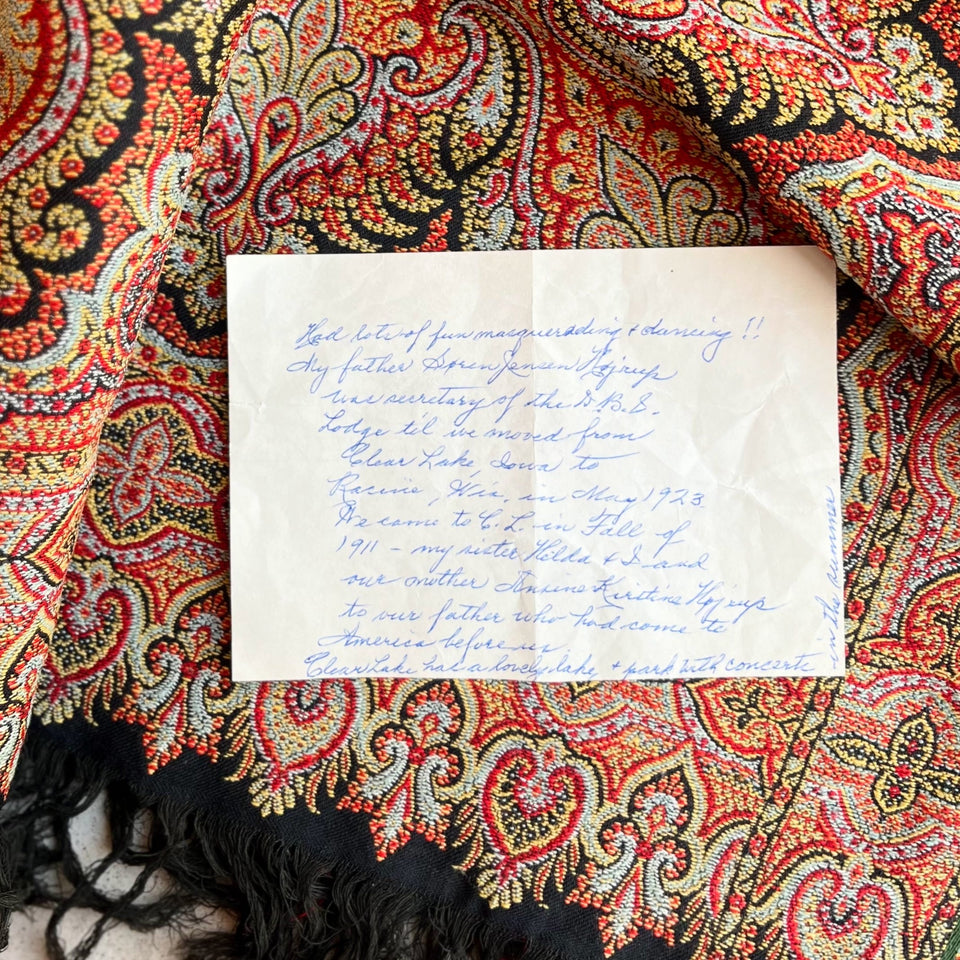 Had lots of fun masquerading & dancing !!
My father Soren Jensen Højrup
was secretary of the D.B.S.
Lodge til we moved from
Clear Lake, Iowa to
Racine, Wis. in May 1923.
We came to C.L. in Fall of
1911 – my sister Hilda & I and
our mother Ansine Kirstine Højrup
to our father who had come to
America before us
Clear Lake has a lovely lake & park with concerts
in the summer.